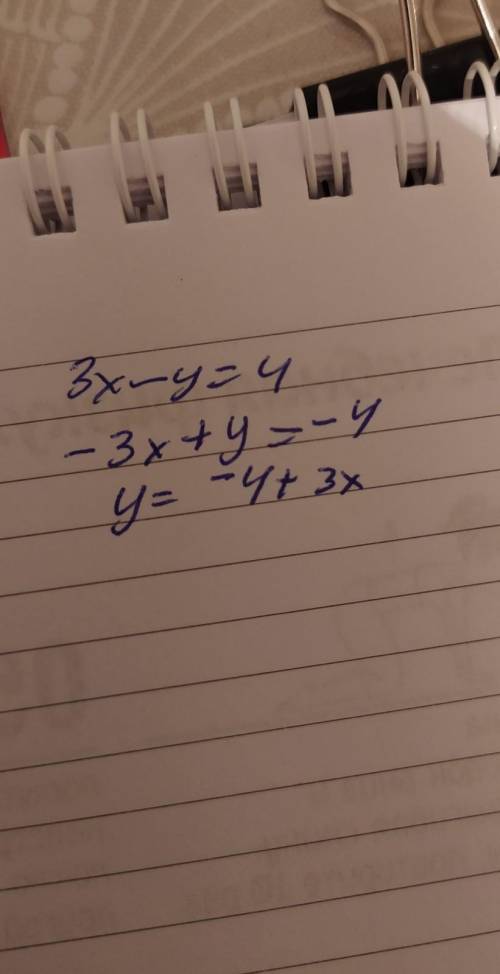 3x-y=4
-3x+y=-4
y= -4+3x